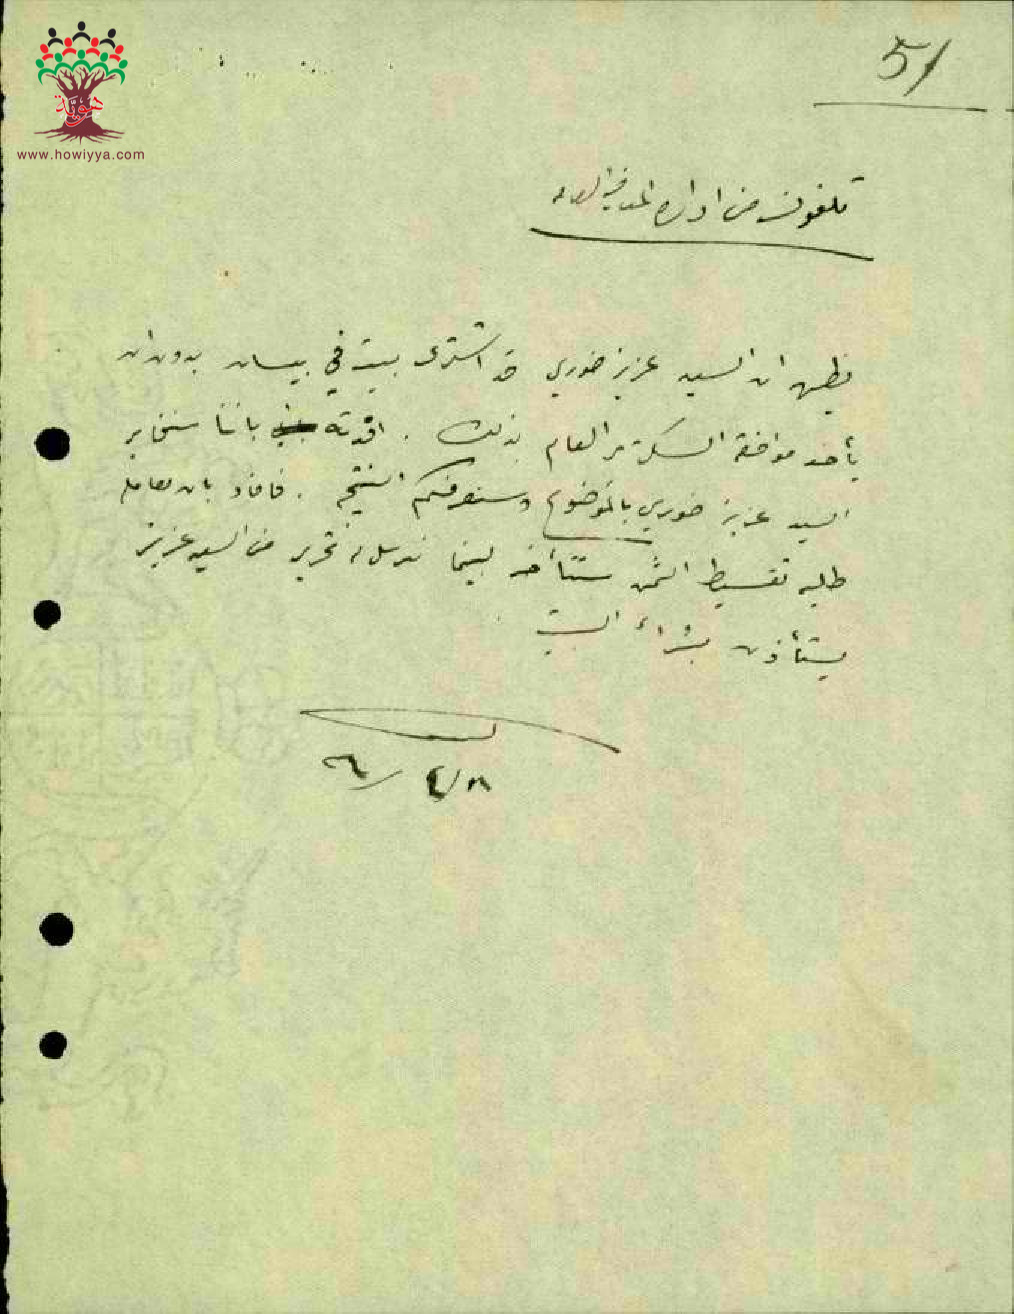 51
هوية
www.howiyya.com
تلفون من ادارة
يظهر ان السيد عزيز خوري قد اشترى بيت في بيسان بدون ان
يأخذ موافقة السكرتير العام بذلك . افدته باننا سنخابر
السيد عزيز خوري بالموضوع وسنعرفكم النتيجه . فافاد بان معاملة
طلبه تقسيط الثمن ستتأخر لبينما نرسل له تحرير من السيد عزيز
يستأذن بشراء البيت